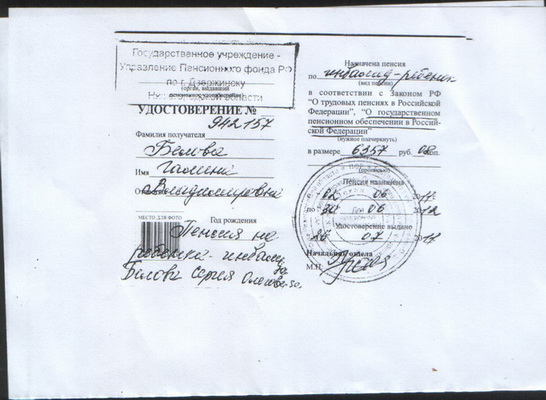 Государственное учреждение -
Управление Пенсионного фонда РФ
по г. Дзержинску
Нижегородской области
(орган, выдавший
УДОСТОВЕРЕНИЕ №
942157
Фамилия получателя
Белова
Имя Галина
Владимировна
МЕСТО ДЛЯ ФОТО
Год рождения
Пенсия на
ребенка-инвалида
Белова Сергея
Назначена пенсия
по инвалид-ребенок
(вид пенсии)
в соответствии с Законом РФ
“О трудовых пенсиях в Российской
Федерации”, “О государственном
пенсионном обеспечении в Россий-
ской Федерации”
(нужное подчеркнуть)
в размере 6357 руб. коп.
(прописью)
Пенсия назначена
02 06
по 30 06
Удостоверение выдано
07
Начальник отдела
М.П.